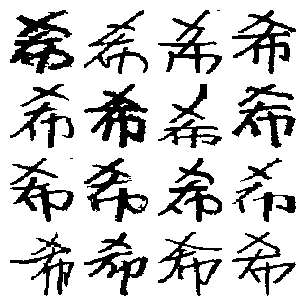 希希希希
希希希希
希希希希
希希希希